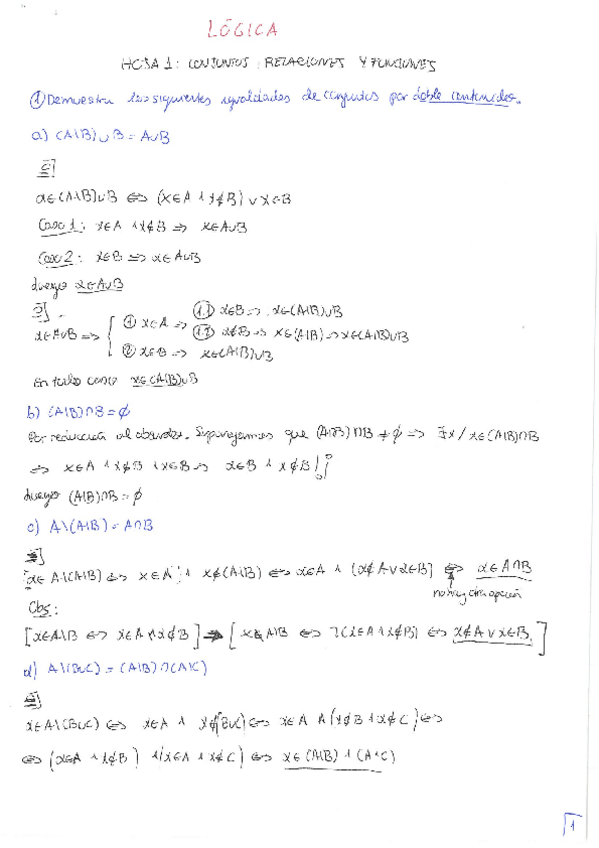 LÓGICA
HOJA 1: CONJUNTOS, RELACIONES Y FUNCIONES
① Demuestra las siguientes igualdades de conjuntos por doble contenido.
a) (A\B)∪B = A∪B
⊆]
x∈(A\B)∪B ⇔ (x∈A ∧ x∉B) ∨ x∈B
Caso 1: x∈A ∧ x∉B ⇒ x∈A∪B
Caso 2: x∈B ⇒ x∈A∪B
luego x∈A∪B
⊇]
x∈A∪B ⇒ { ① x∈A ⇒ 1.1 x∈B ⇒ x∈(A\B)∪B
1.2 x∉B ⇒ x∈(A\B) ⇒ x∈(A\B)∪B
② x∈B ⇒ x∈(A\B)∪B
En todo caso x∈(A\B)∪B
b) (A\B)∩B = ∅
Por reducción al absurdo. Supongamos que (A\B)∩B ≠ ∅ ⇒ ∃x / x∈(A\B)∩B
⇒ x∈A ∧ x∉B ∧ x∈B ⇒ x∈B ∧ x∉B !¡
luego (A\B)∩B = ∅
c) A\(A\B) = A∩B
=]
x∈A\(A\B) ⇔ x∈A ∧ x∉(A\B) ⇔ x∈A ∧ (x∉A ∨ x∈B) ⇔ x∈A∩B
no hay otra opción
Obs:
[x∈A\B ⇔ x∈A ∧ x∉B] ⇒ [x∉A\B ⇔ ¬(x∈A ∧ x∉B) ⇔ x∉A ∨ x∈B]
d) A\(B∪C) = (A\B)∩(A\C)
=]
x∈A\(B∪C) ⇔ x∈A ∧ x∉(B∪C) ⇔ x∈A ∧ (x∉B ∧ x∉C) ⇔
⇔ (x∈A ∧ x∉B) ∧ (x∈A ∧ x∉C) ⇔ x∈(A\B) ∧ (A\C)
1